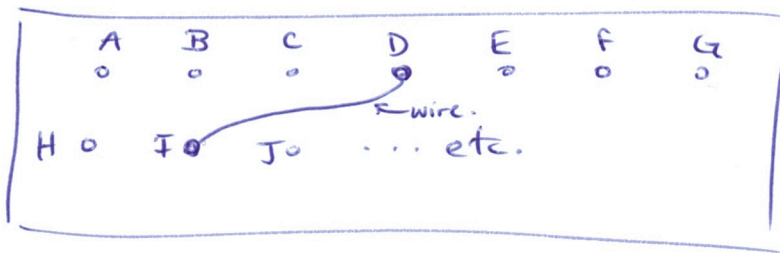 A B C D E F G
wire.
H I J ... etc.